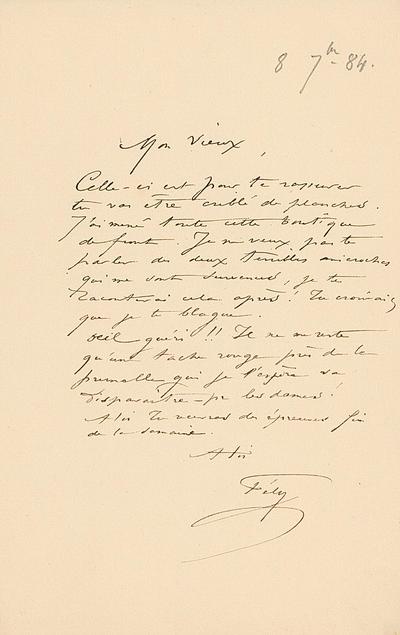 8 7bre 84.
Mon vieux,
Celle-ci est pour te rassurer
tu vas être criblé de planches.
J'ai mené toute cette boutique
de front. Je ne veux pas te
parler des deux terribles anicroches
qui me sont survenues, je te
raconterai cela après! Tu croirais
que je te blague.
Œil guéri!! Il ne me reste
qu'une tache rouge près de la
prunelle qui je l'espère va
disparaître – pr les dames!
A toi Tu recevras des épreuves fin
de la semaine.
A toi
Fély